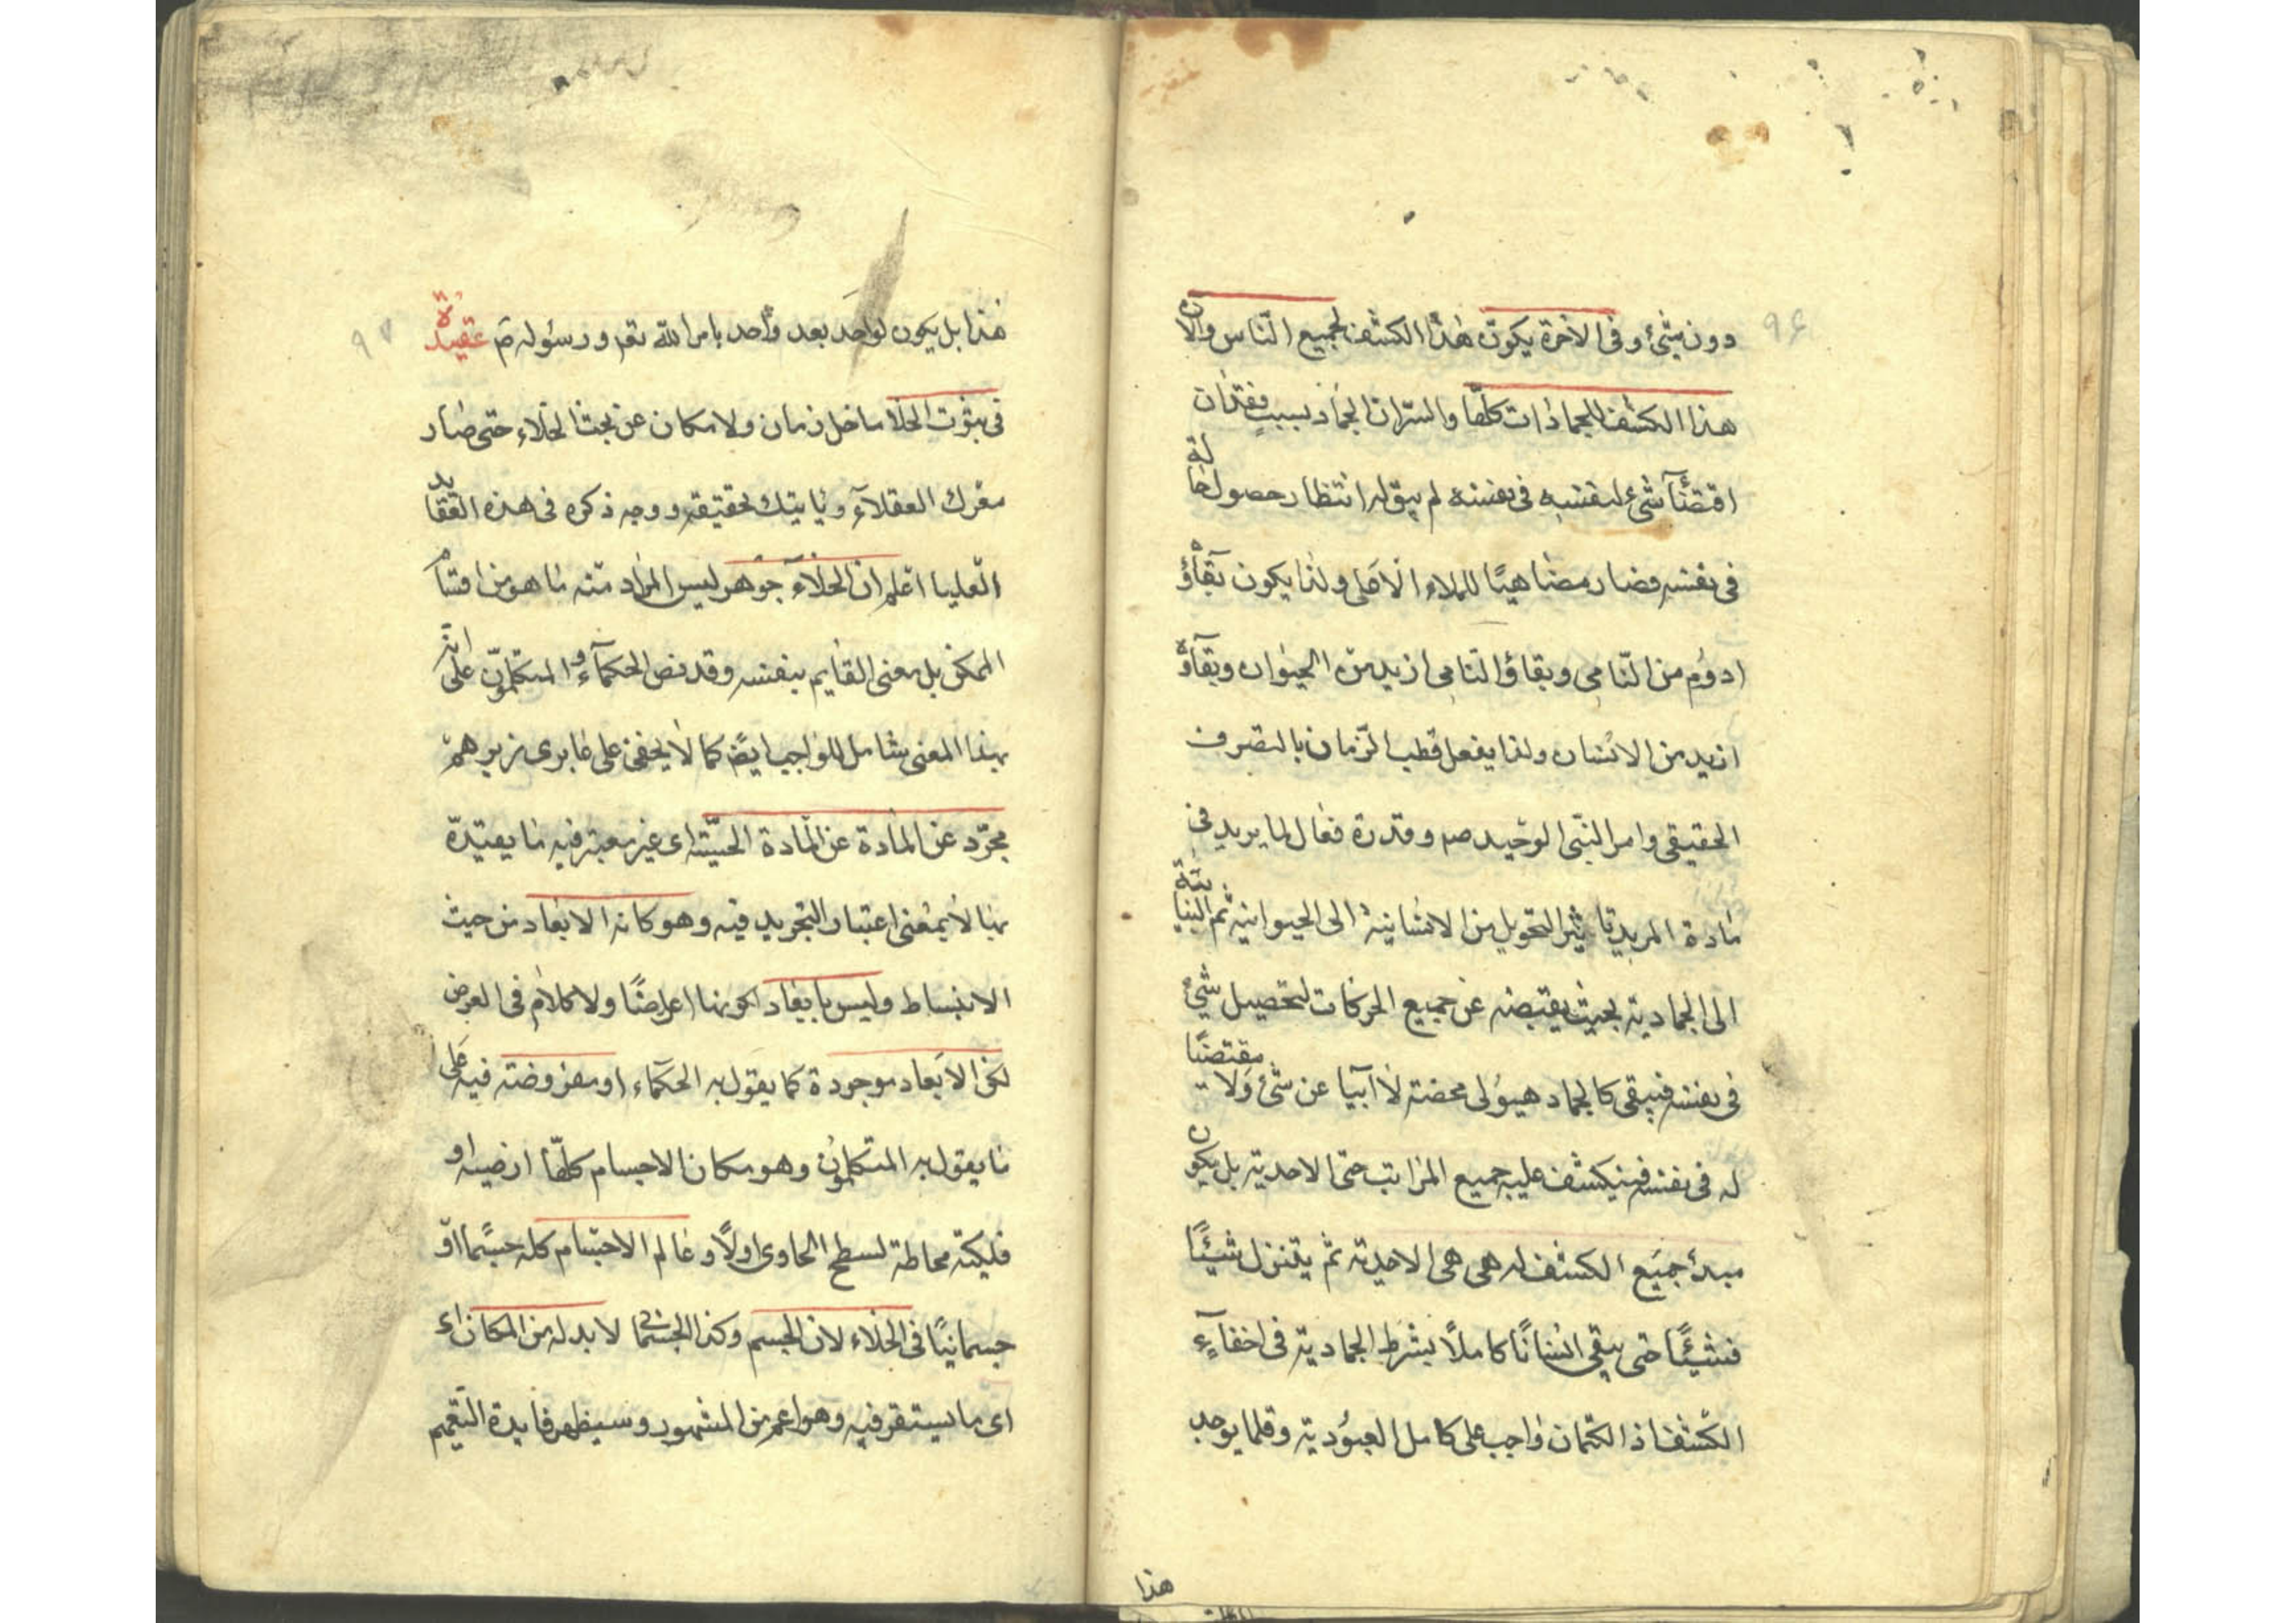 ٩٤
دون شئ وفى الاخرة يكون هذا الكشف لجميع الناس والان
هذا الكشف للجمادات كلها والسر ان الجماد بسبب فقدان
اقتضآء شئ لنفسه فى نفسه لم يبق له انتظار حصول حالة
فى نفسه فصار مضاهيًا للملاء الاعلى ولذا يكون بقاؤه
ادوم من النامى وبقاؤ النامى ازيد من الحيوان وبقآؤه
ازيد من الانسان ولذا يفعل قطب الزمان بالتصرف
الحقيقى وامر النبى الوحيد صم وقدرة فعال لما يريد فى
مادة المريد تاثير التحويل من الانسانية الى الحيوانية ثم النباتية
الى الجمادية بحيث يقبضه عن جميع الحركات لتحصيل شئ
فى نفسه فيبقى كالجماد هيولى محضة لا آبيا عن شئ ولا مقتضيًا
له فى نفسه فينكشف عليه جميع المراتب حتى الاحدية بل يكون
مبدأ جميع الكشف له هى هى الاحدية ثم يتنزل شيئًا
فشيئًا حتى يبقى انسانًا كاملًا بشرط الجمادية فى اخفآء
الكشف اذ الكتمان واجب على كامل العبودية وقلما يوجد
هذا
٩٧
هذا بل يكون لواحد بعد واحد بامر الله تعم ورسوله ص عقيدة
فى ثبوت الخلا ما خلى زمان ولا مكان عن بحث الخلاء حتى صار
معرك العقلآء وياتيك تحقيقه ووجه ذكره فى هذه العقايد
العليا اعلم ان الخلآء جوهر ليس المراد منه ما هو من اقسام
الممكن بل معنى القايم بنفسه وقد نص الحكمآء والمتكلمون على انه
بهذا المعنى شامل للواجب ايضً كما لا يخفى على من يرى زبرهم
مجرد عن المادة عن المادة الحسية اى غير معتبر فيه ما يفيده
بها لا بمعنى اعتبار التجريد فيه وهو كانه الابعاد من حيث
الانبساط وليس بابعاد لكونها اعراضًا ولا كلام فى العرض
لكن الابعاد موجودة كما يقول به الحكماء او مفروضة فيه على
ما يقول به المتكلمون وهو مكان الاجسام كلها ارضية او
فلكية محاطة لسطح الحاوى اولًا وعالم الاجسام كله جسمًا او
جسمانيًا فى الخلاء لان الجسم وكذا الجسمانى لا بد له من المكان اى
اى ما يستقر فيه وهو اعم من المشهور وسيظهر فايدة التعميم